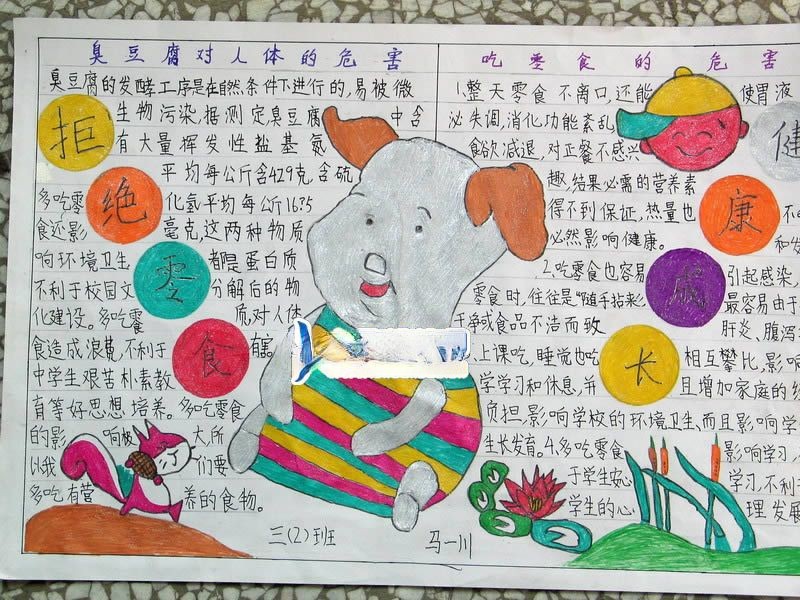 臭豆腐对人体的危害
臭豆腐的发酵工序是在自然条件下进行的,易被微
生物污染,据测定臭豆腐中含
有大量挥发性盐基氮
平均每公斤含429克,含硫
化氢平均每公斤16?5
毫克,这两种物质
都是蛋白质
分解后的物
质,对人体
有害。
拒
绝
零
食
多吃零
食还影
响环境卫生
不利于校园文
化建设。多吃零
食造成浪费,不利于
中学生艰苦朴素教
育等好思想培养。多吃零食
的影响很大,所
以我们要
多吃有营养的食物。
三(2)班
马一川
吃零食的危害
1.整天零食不离口,还能使胃液
泌失调,消化功能紊乱
食欲减退,对正餐不感兴
趣,结果必需的营养素
得不到保证,热量也不
必然影响健康。和发
2.吃零食也容易引起感染,
零食时,往往是“随手拈来”最容易由于
干净或食品不洁而致肝炎、腹泻
上课吃,睡觉也吃相互攀比,影响
学学习和休息,并且增加家庭的经
负担,影响学校的环境卫生,而且影响学
生长发育。4.多吃零食影响学习,
于学生安心学习,不利于
学生的心理发展
健
康
成
长